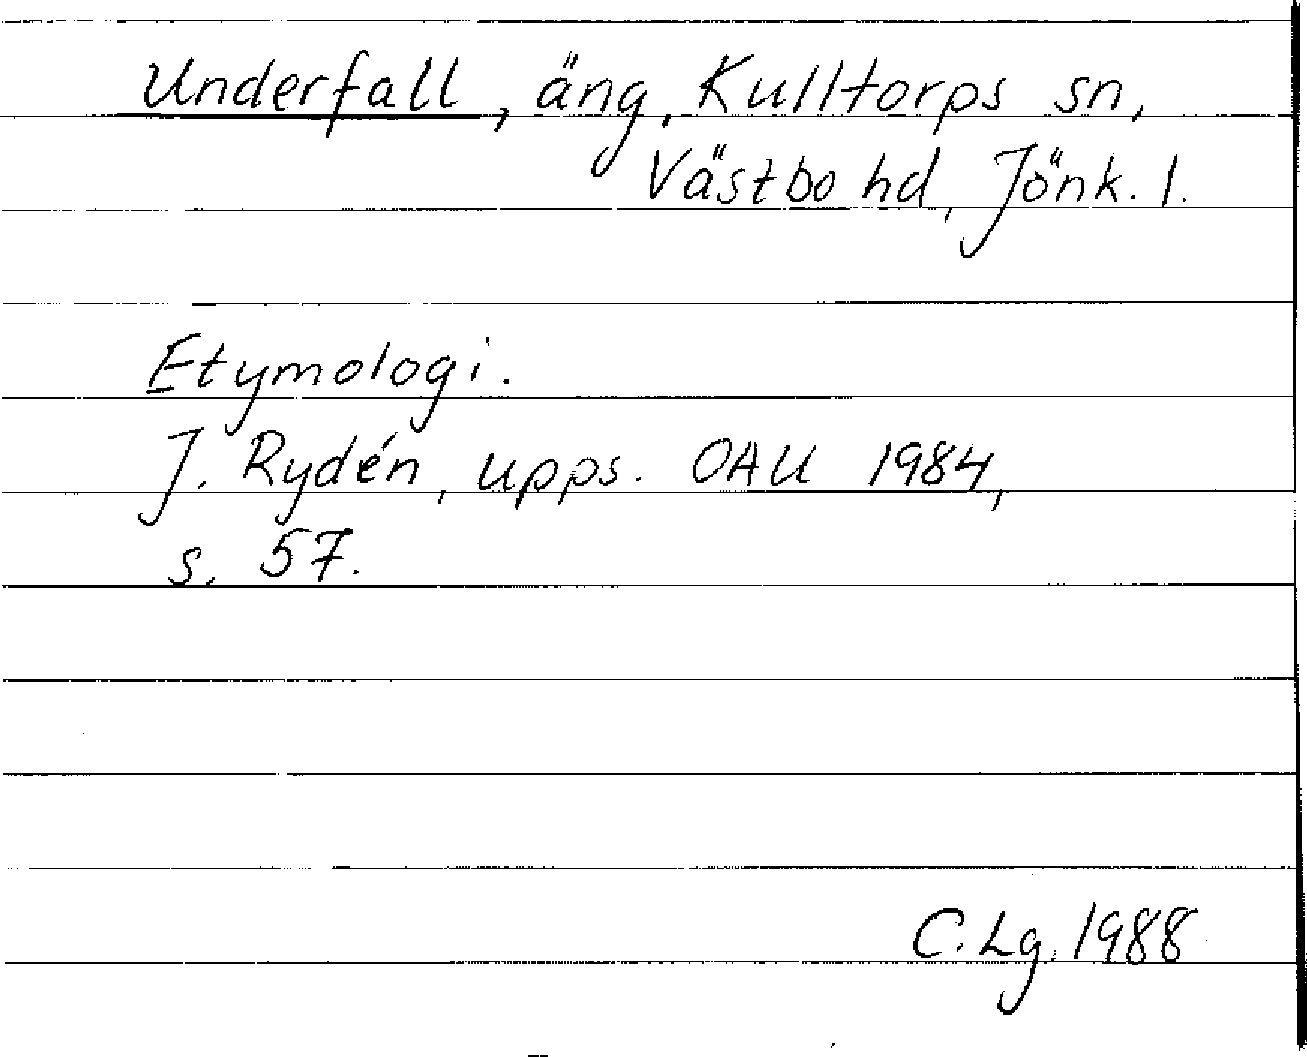 Underfall, äng, Kulltorps sn,
Västbo hd, Jönk. l.
Etymologi.
J. Rydén, upps. OAU 1984,
s. 57.
C. Lg. 1988